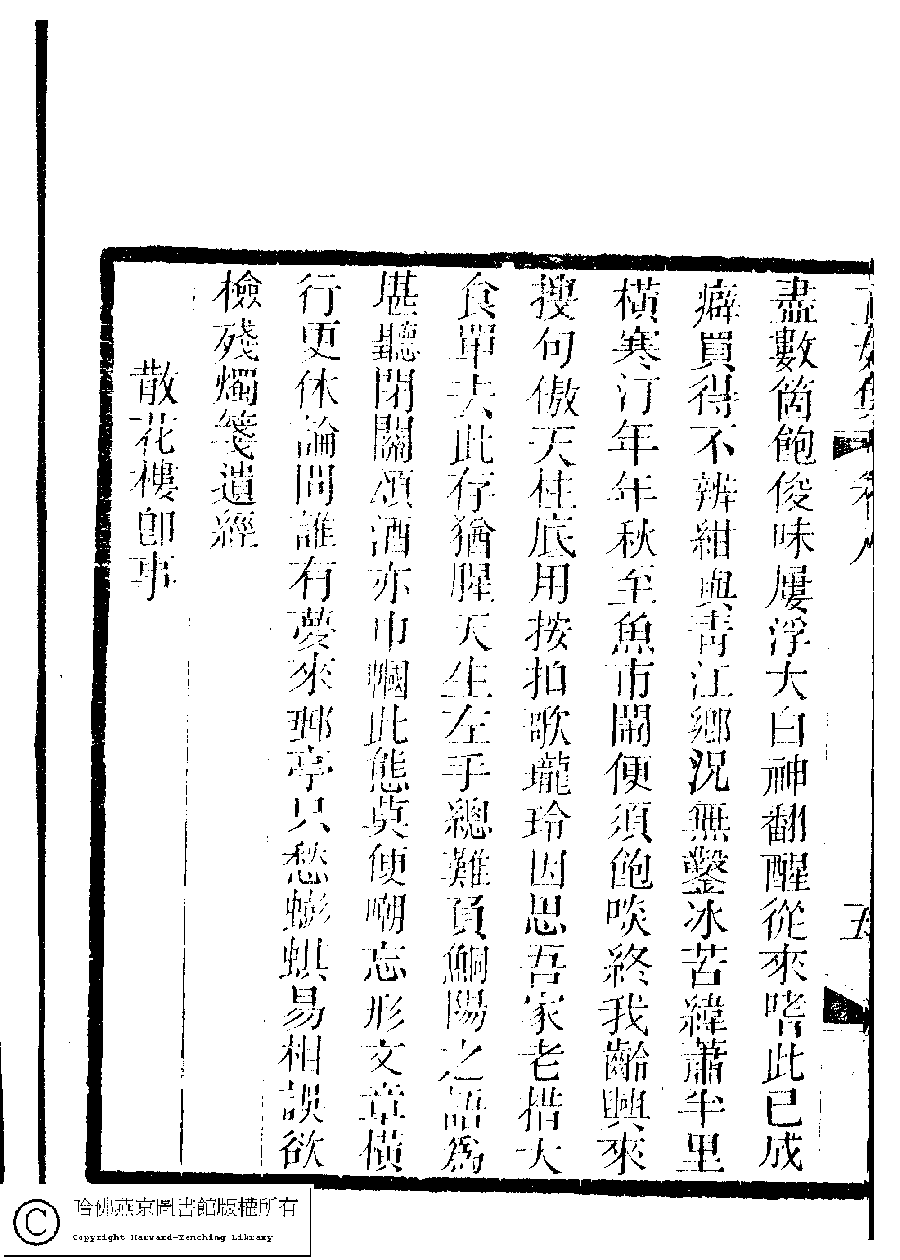 盡數箇飽俊味屢浮大白神翻醒從來嗜此已成
癖買得不辨紺與青江鄉況無鑿冰苦緯蕭半里
橫寒汀年年秋至魚市鬧便須飽啖終我齡興來
搜句傲天柱底用按拍歌瓏玲因思吾家老措大
食單去此存猶腥天生左手總難負鮦陽之語爲
堪聽閉關頌酒亦巾幗此態莫使嘲忘形文章橫
行更休論問誰有夢來郵亭只愁蟛蜞易相誤欲
檢殘燭箋遺經
散花樓卽事
五
哈佛燕京圖書館版權所有
Copyright Harvard-Yenching Library